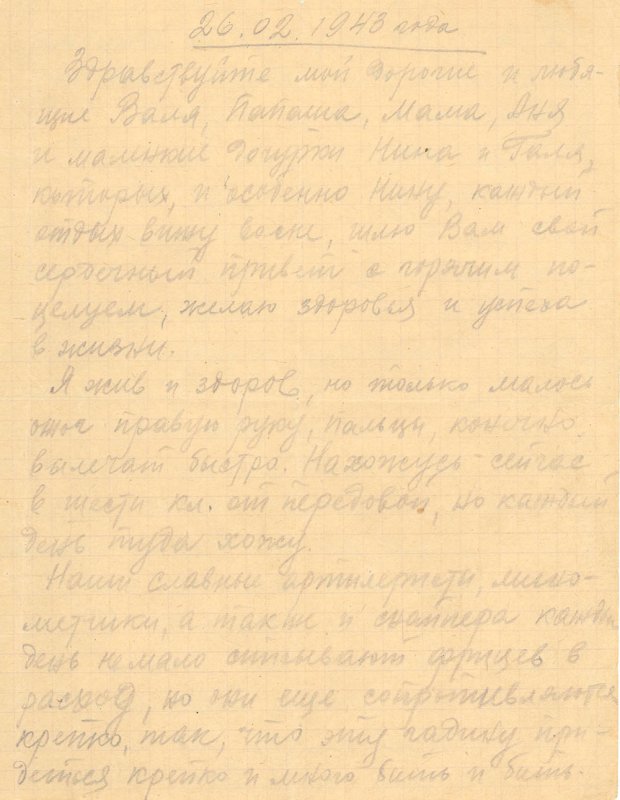 26.02.1943 года
Здравствуйте мой дорогие и любя-
щие Валя, Папаша, Мама, Аня
и маленкие дочурки Нина и Галя,
которых, и особенно Нину, каждый
отдых вижу восне, шлю Вам свой
сердечный привет с горячим по-
целуем, желаю здоровья и успеха
в жизни.
Я жив и здоров, но только малось
ожог правую руку, пальцы, конечно
вылечат быстро. Нахожусь сейчас
в шести кл. от передовой, но каждый
день туда хожу.
Наши славные артилеристы, мино-
метчики, а так же и снайпера каждый
день немало списывают фрицев в
расход, но они еще сопротивляются
крепко, так, что эту гадину при-
деться крепко и много бить и бить.